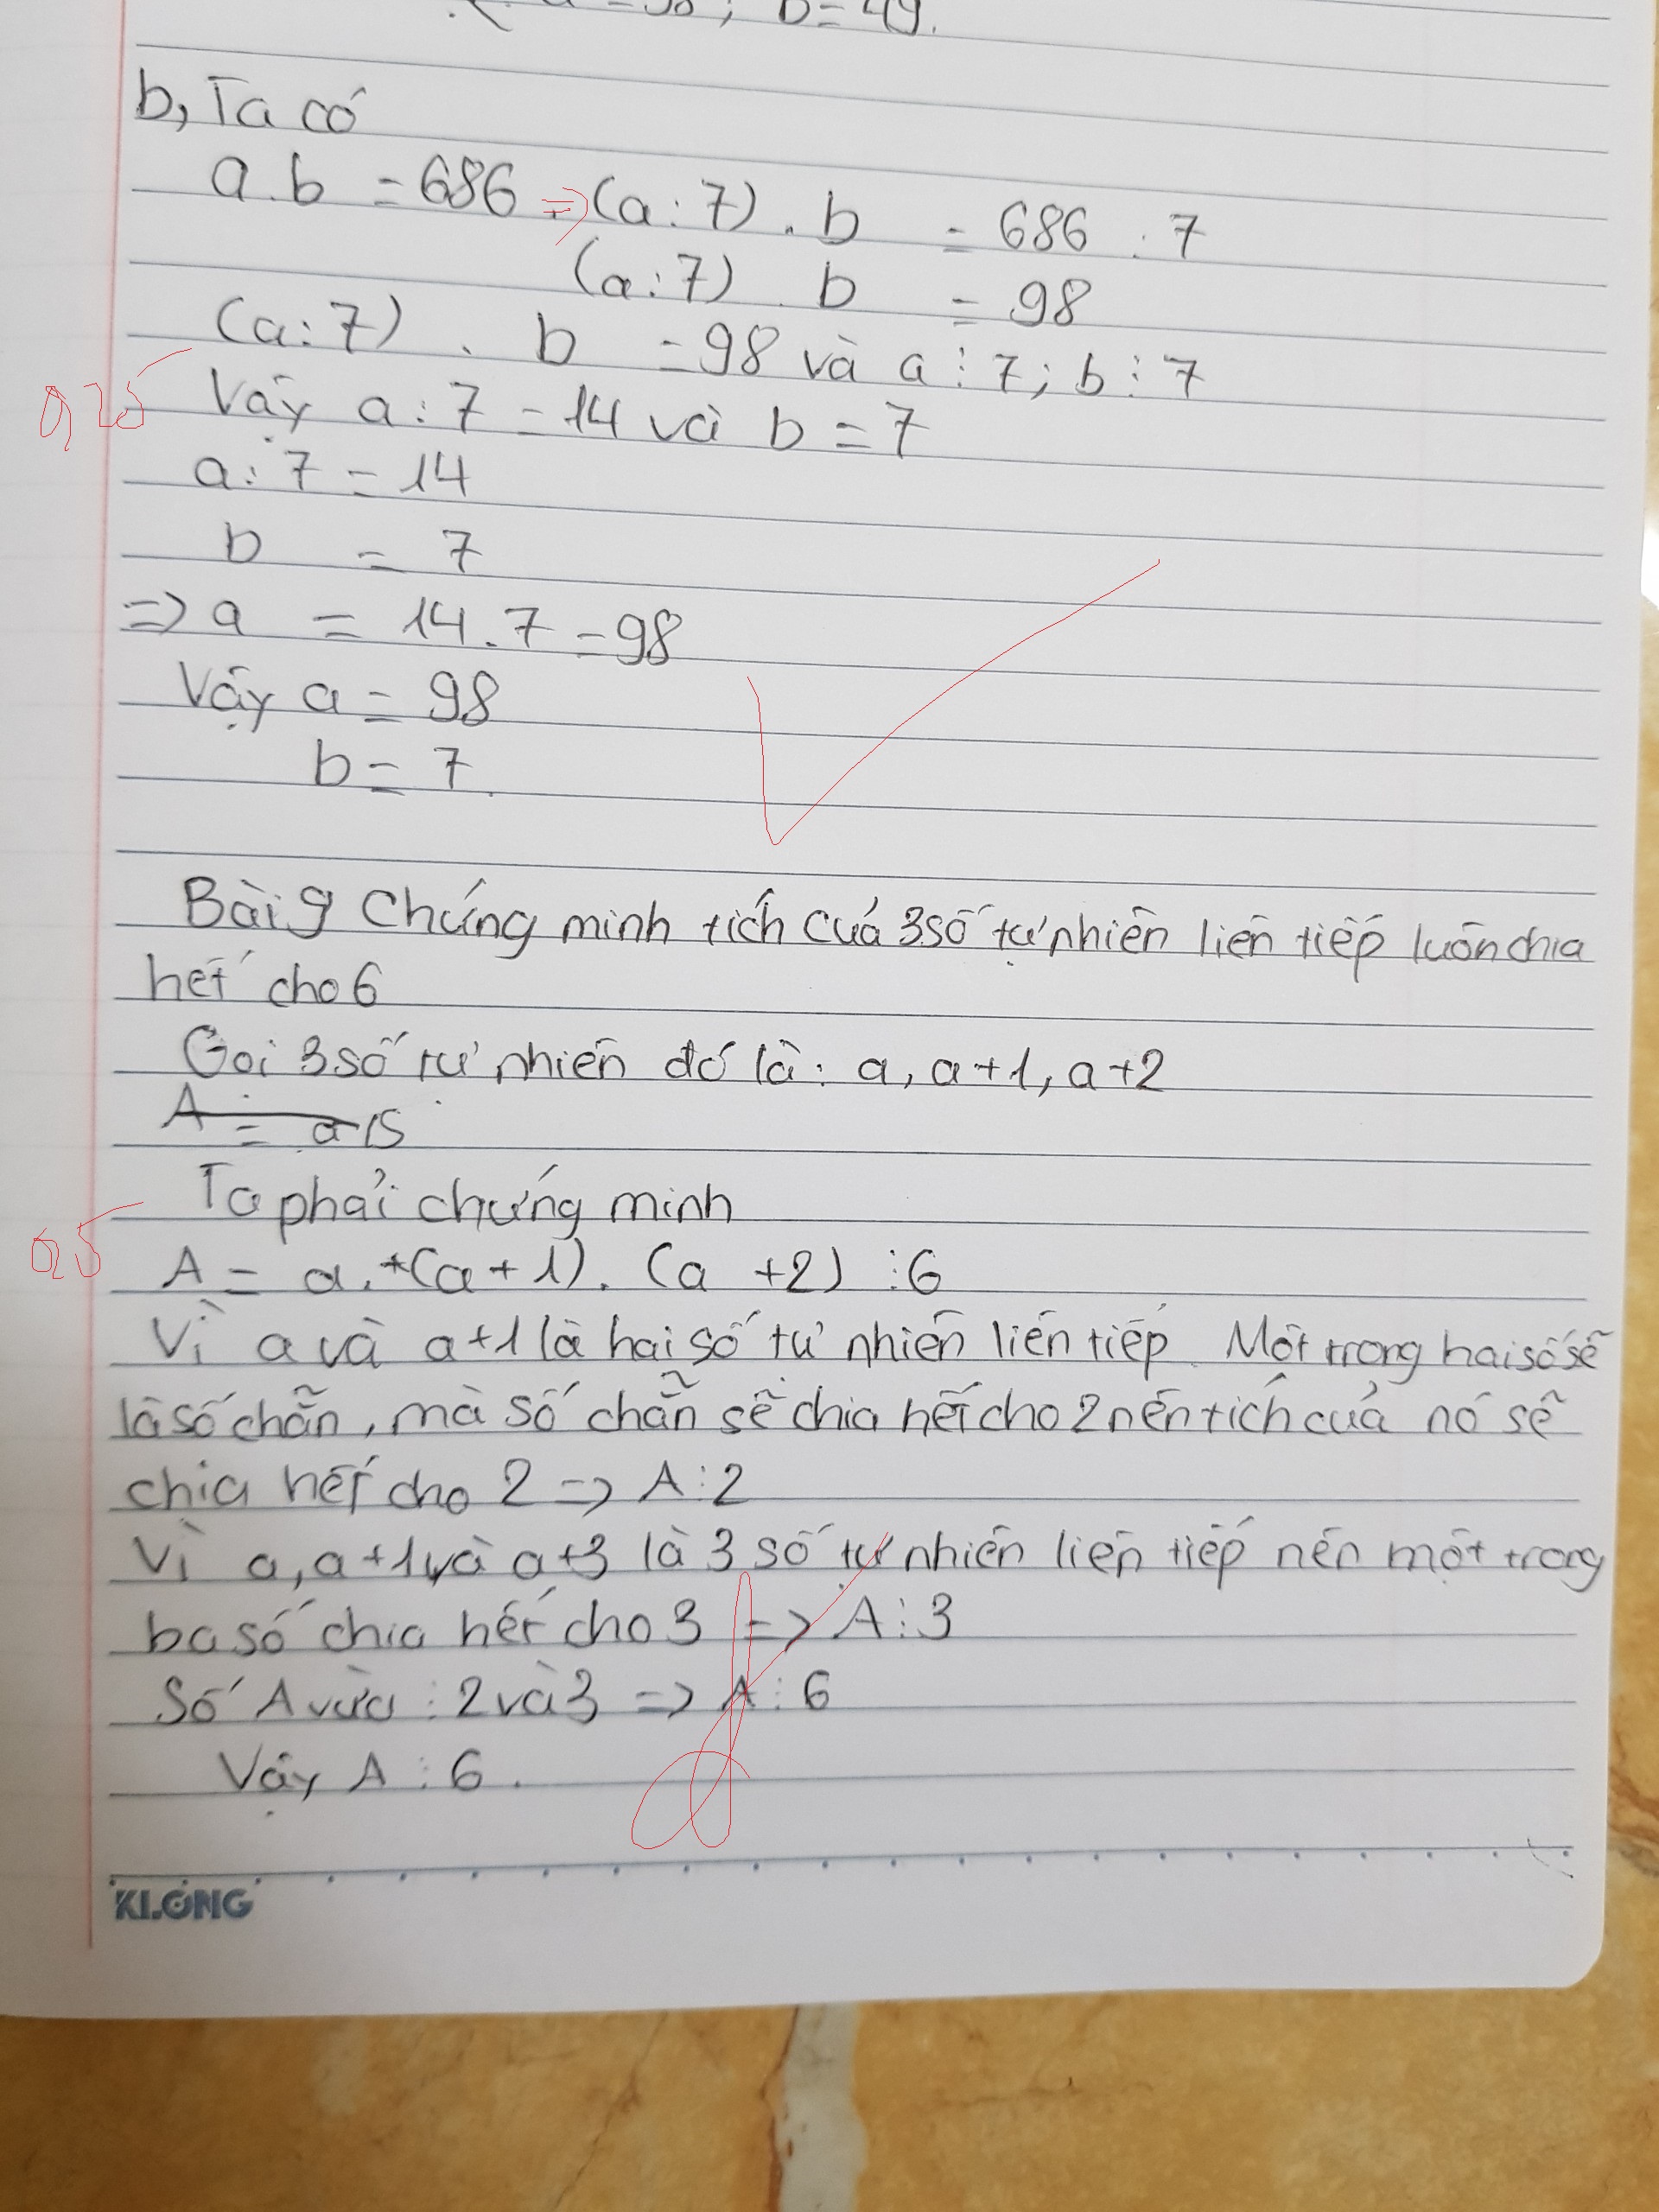 a = 98; b = 49.
b, Ta có
a.b = 686 => (a : 7) . b = 686 : 7
(a : 7) . b = 98
(a : 7) . b = 98 và a ⋮ 7; b ⋮ 7
0,25
Vậy a : 7 = 14 và b = 7
a : 7 = 14
b = 7
=> a = 14 . 7 = 98
Vậy a = 98
b = 7.
Bài 9 Chứng minh tích của 3 số tự nhiên liên tiếp luôn chia
hết cho 6
Gọi 3 số tự nhiên đó là: a, a+1, a+2
Ta phải chứng minh
0,5
A = a.(a+1).(a+2) ⋮ 6
Vì a và a+1 là hai số tự nhiên liên tiếp. Một trong hai số sẽ
là số chẵn, mà số chẵn sẽ chia hết cho 2 nên tích của nó sẽ
chia hết cho 2 => A ⋮ 2
Vì a, a+1 và a+3 là 3 số tự nhiên liên tiếp nên một trong
ba số chia hết cho 3 => A ⋮ 3
Số A vừa ⋮ 2 và 3 => A ⋮ 6
Vậy A ⋮ 6.
KLONG